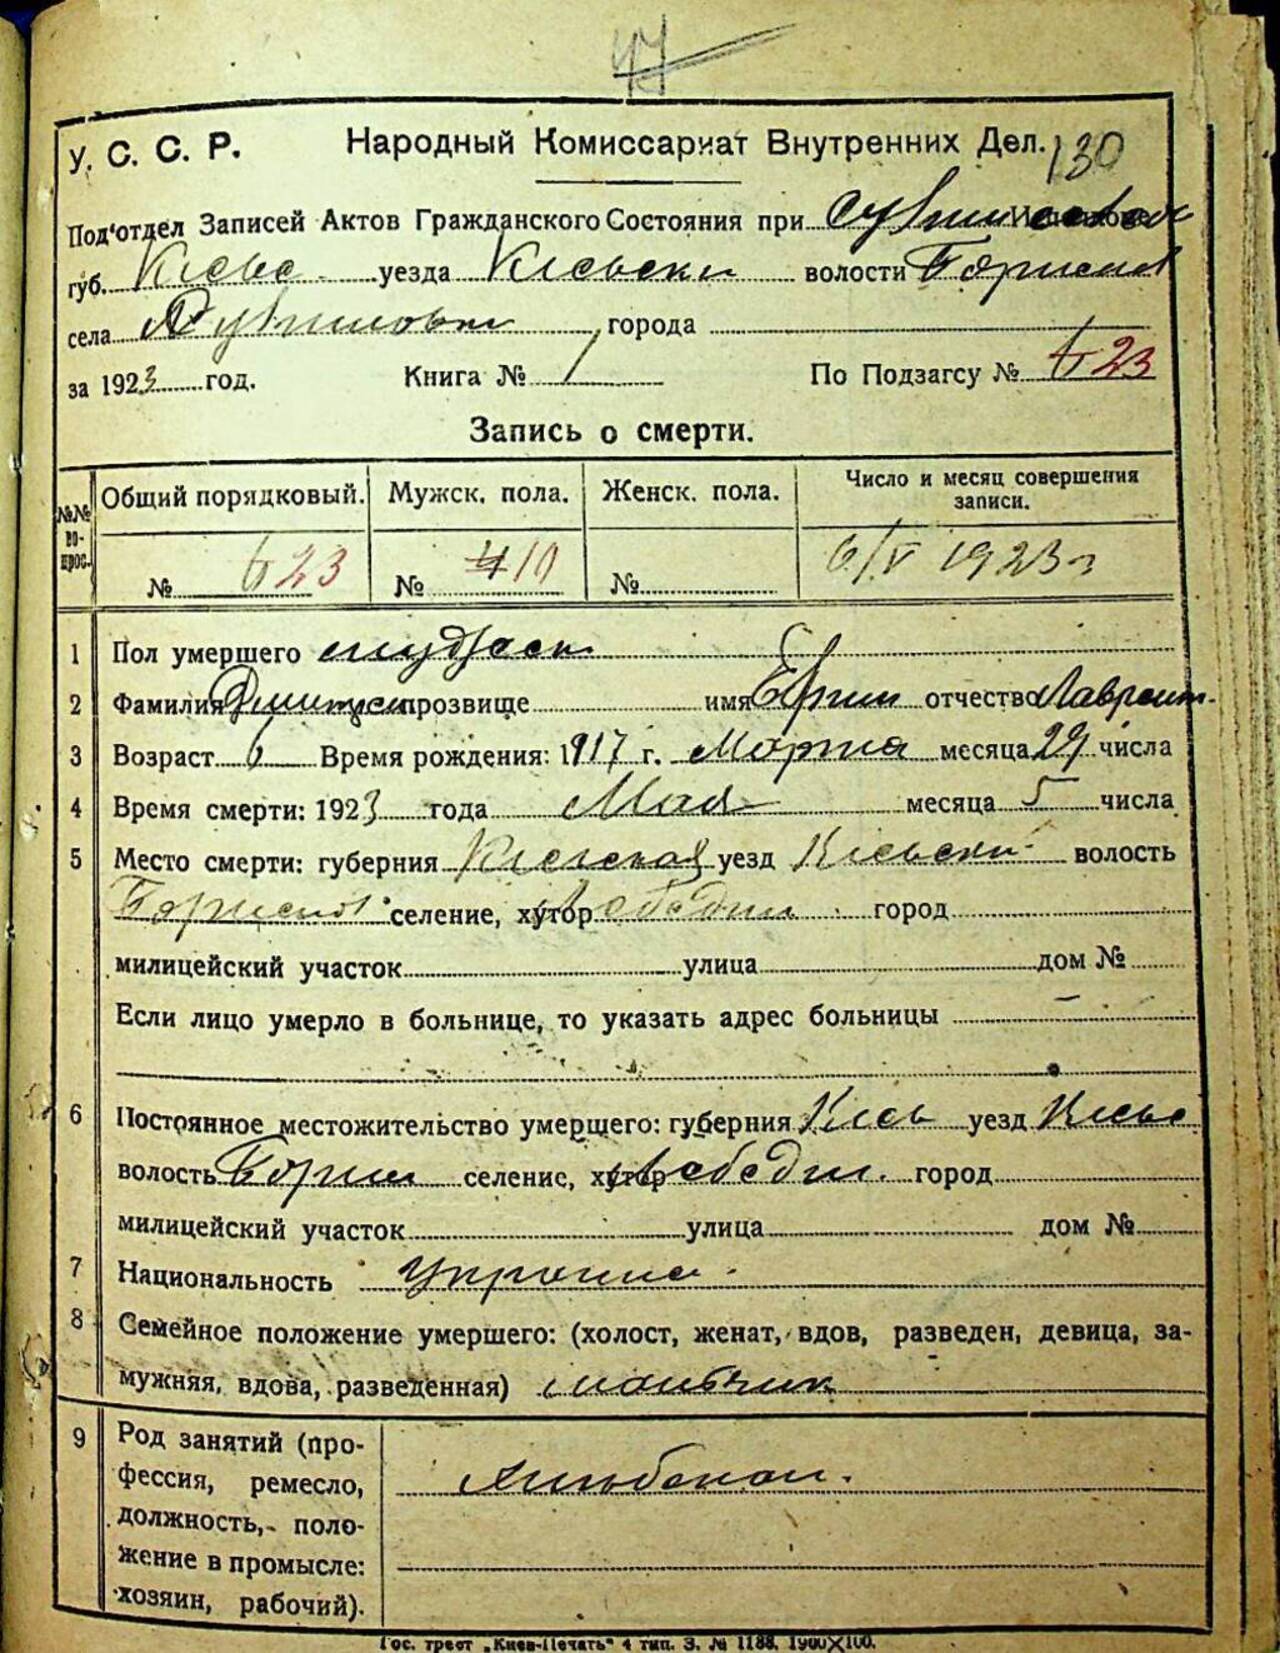 47
У. С. С. Р. Народный Комиссариат Внутренних Дел. 130
Под'отдел Записей Актов Гражданского Состояния при
губ. Киевс уезда Киевски волости Борисп
села города
за 1923 год. Книга № 1 По Подзагсу № 623
Запись о смерти.
№№ во-прос. Общий порядковый. Мужск. пола. Женск. пола. Число и месяц совершения
записи.
№ 623 № 10 № 6/V 1923 г
1 Пол умершего мужеск
2 Фамилия прозвище имя отчество Лаврент.
3 Возраст 6 Время рождения: 1917 г. Марта месяца 29 числа
4 Время смерти: 1923 года Мая месяца 5 числа
5 Место смерти: губерния Киевская уезд Киевский волость
Борисп селение, хутор Лебедин город
милицейский участок улица дом №
Если лицо умерло в больнице, то указать адрес больницы —
6 Постоянное местожительство умершего: губерния Киев уезд Киевс
волость Борисп селение, хутор Лебедин. город
милицейский участок улица дом №
7 Национальность Украинец
8 Семейное положение умершего: (холост, женат, вдов, разведен, девица, за-
мужняя, вдова, разведенная) мальчик
9 Род занятий (про-
фессия, ремесло,
должность, поло-
жение в промысле:
хозяин, рабочий).
Гос. трест „Киев-Печать" 4 тип. З. № 1188. 1900×100.